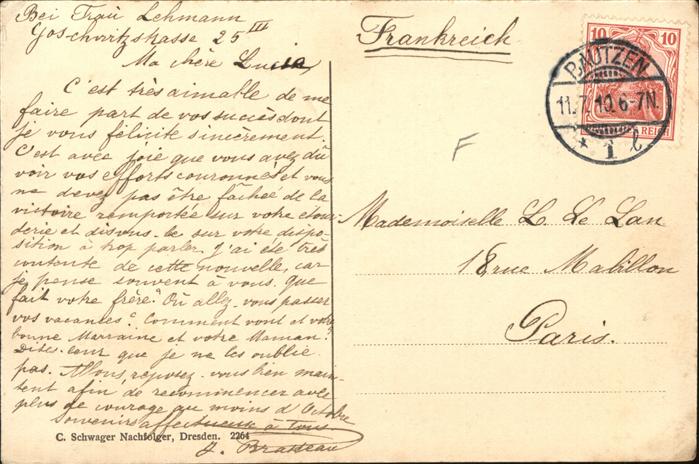 Bei Frau Lehmann
Goschwitzstrasse 25 III
Ma chère Lucia,
C'est très aimable de me
faire part de vos succès dont
je vous félicite sincèrement.
C'est avec joie que vous avez dû
voir vos efforts couronnés et vous
ne devez pas être fâchée de la
victoire remportée sur votre étour-
derie et disons-le sur votre dispo-
sition à trop parler. J'ai été très
contente de cette nouvelle, car
je pense souvent à vous. Que
fait votre frère? Où allez-vous passer
vos vacances? Comment vont et votre
bonne Marraine et votre Maman?
Dites-leur que je ne les oublie
pas. Allons, reposez-vous bien main-
tenant afin de recommencer avec
plus de courage au moins d'Octobre
Souvenirs affectueux à tous
J.
C. Schwager Nachfolger, Dresden. 2264
Frankreich
10 10
REICH
BAUTZEN
11.7.10.6-7N.
* 1 l
F
Mademoiselle L. Le Lan
18 rue Mabillon
Paris.